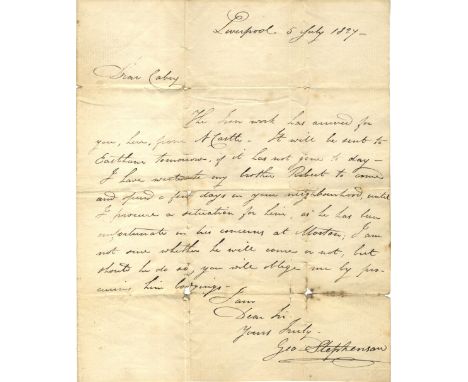 Liverpool 5 July 1827 -
Dear Cabry
The Iron work has arrived for
you, here, from NCastle - It will be sent to
Eastham tomorrow, if it has not gone to day -
I have my brother Robert to come
and spend a few days in your neighbourhood, until
I procure a situation for him, as he has been
unfortunate in his concerns at ; I am
not sure whether he will come or not, but
should he do so, you will oblige me by pro
curing him lodgings -
I am
Dear Sir
Yours truly -
Geo Stephenson